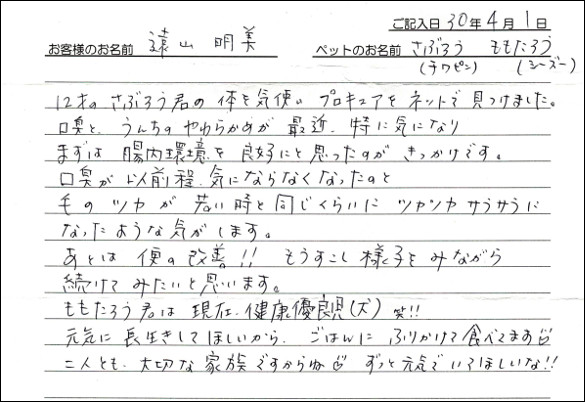 ご記入日 30年 4月 1日
お客様のお名前 遠山 明美 ペットのお名前 さぶろう ももたろう
(チワピン) (シーズー)
12才の さぶろう君の 体を気使い プロキュアを ネットで 見つけました。
口臭と、うんちの やわらかめが 最近、特に気になり
まずは 腸内環境を 良好にと 思ったのが きっかけです。
口臭が 以前程、気にならなくなったのと
毛の ツヤが 若い時と同じくらいに ツヤツヤ サラサラに
なったような気がします。
あとは 便の改善!! もうすこし 様子を みながら
続けて みたいと思います。
ももたろう君は 現在、健康優良児(犬) 笑!!
元気に 長生きしてほしいから、ごはんに ふりかけて食べてます
二人とも、大切な 家族ですからね ずっと元気でいてほしいな!!